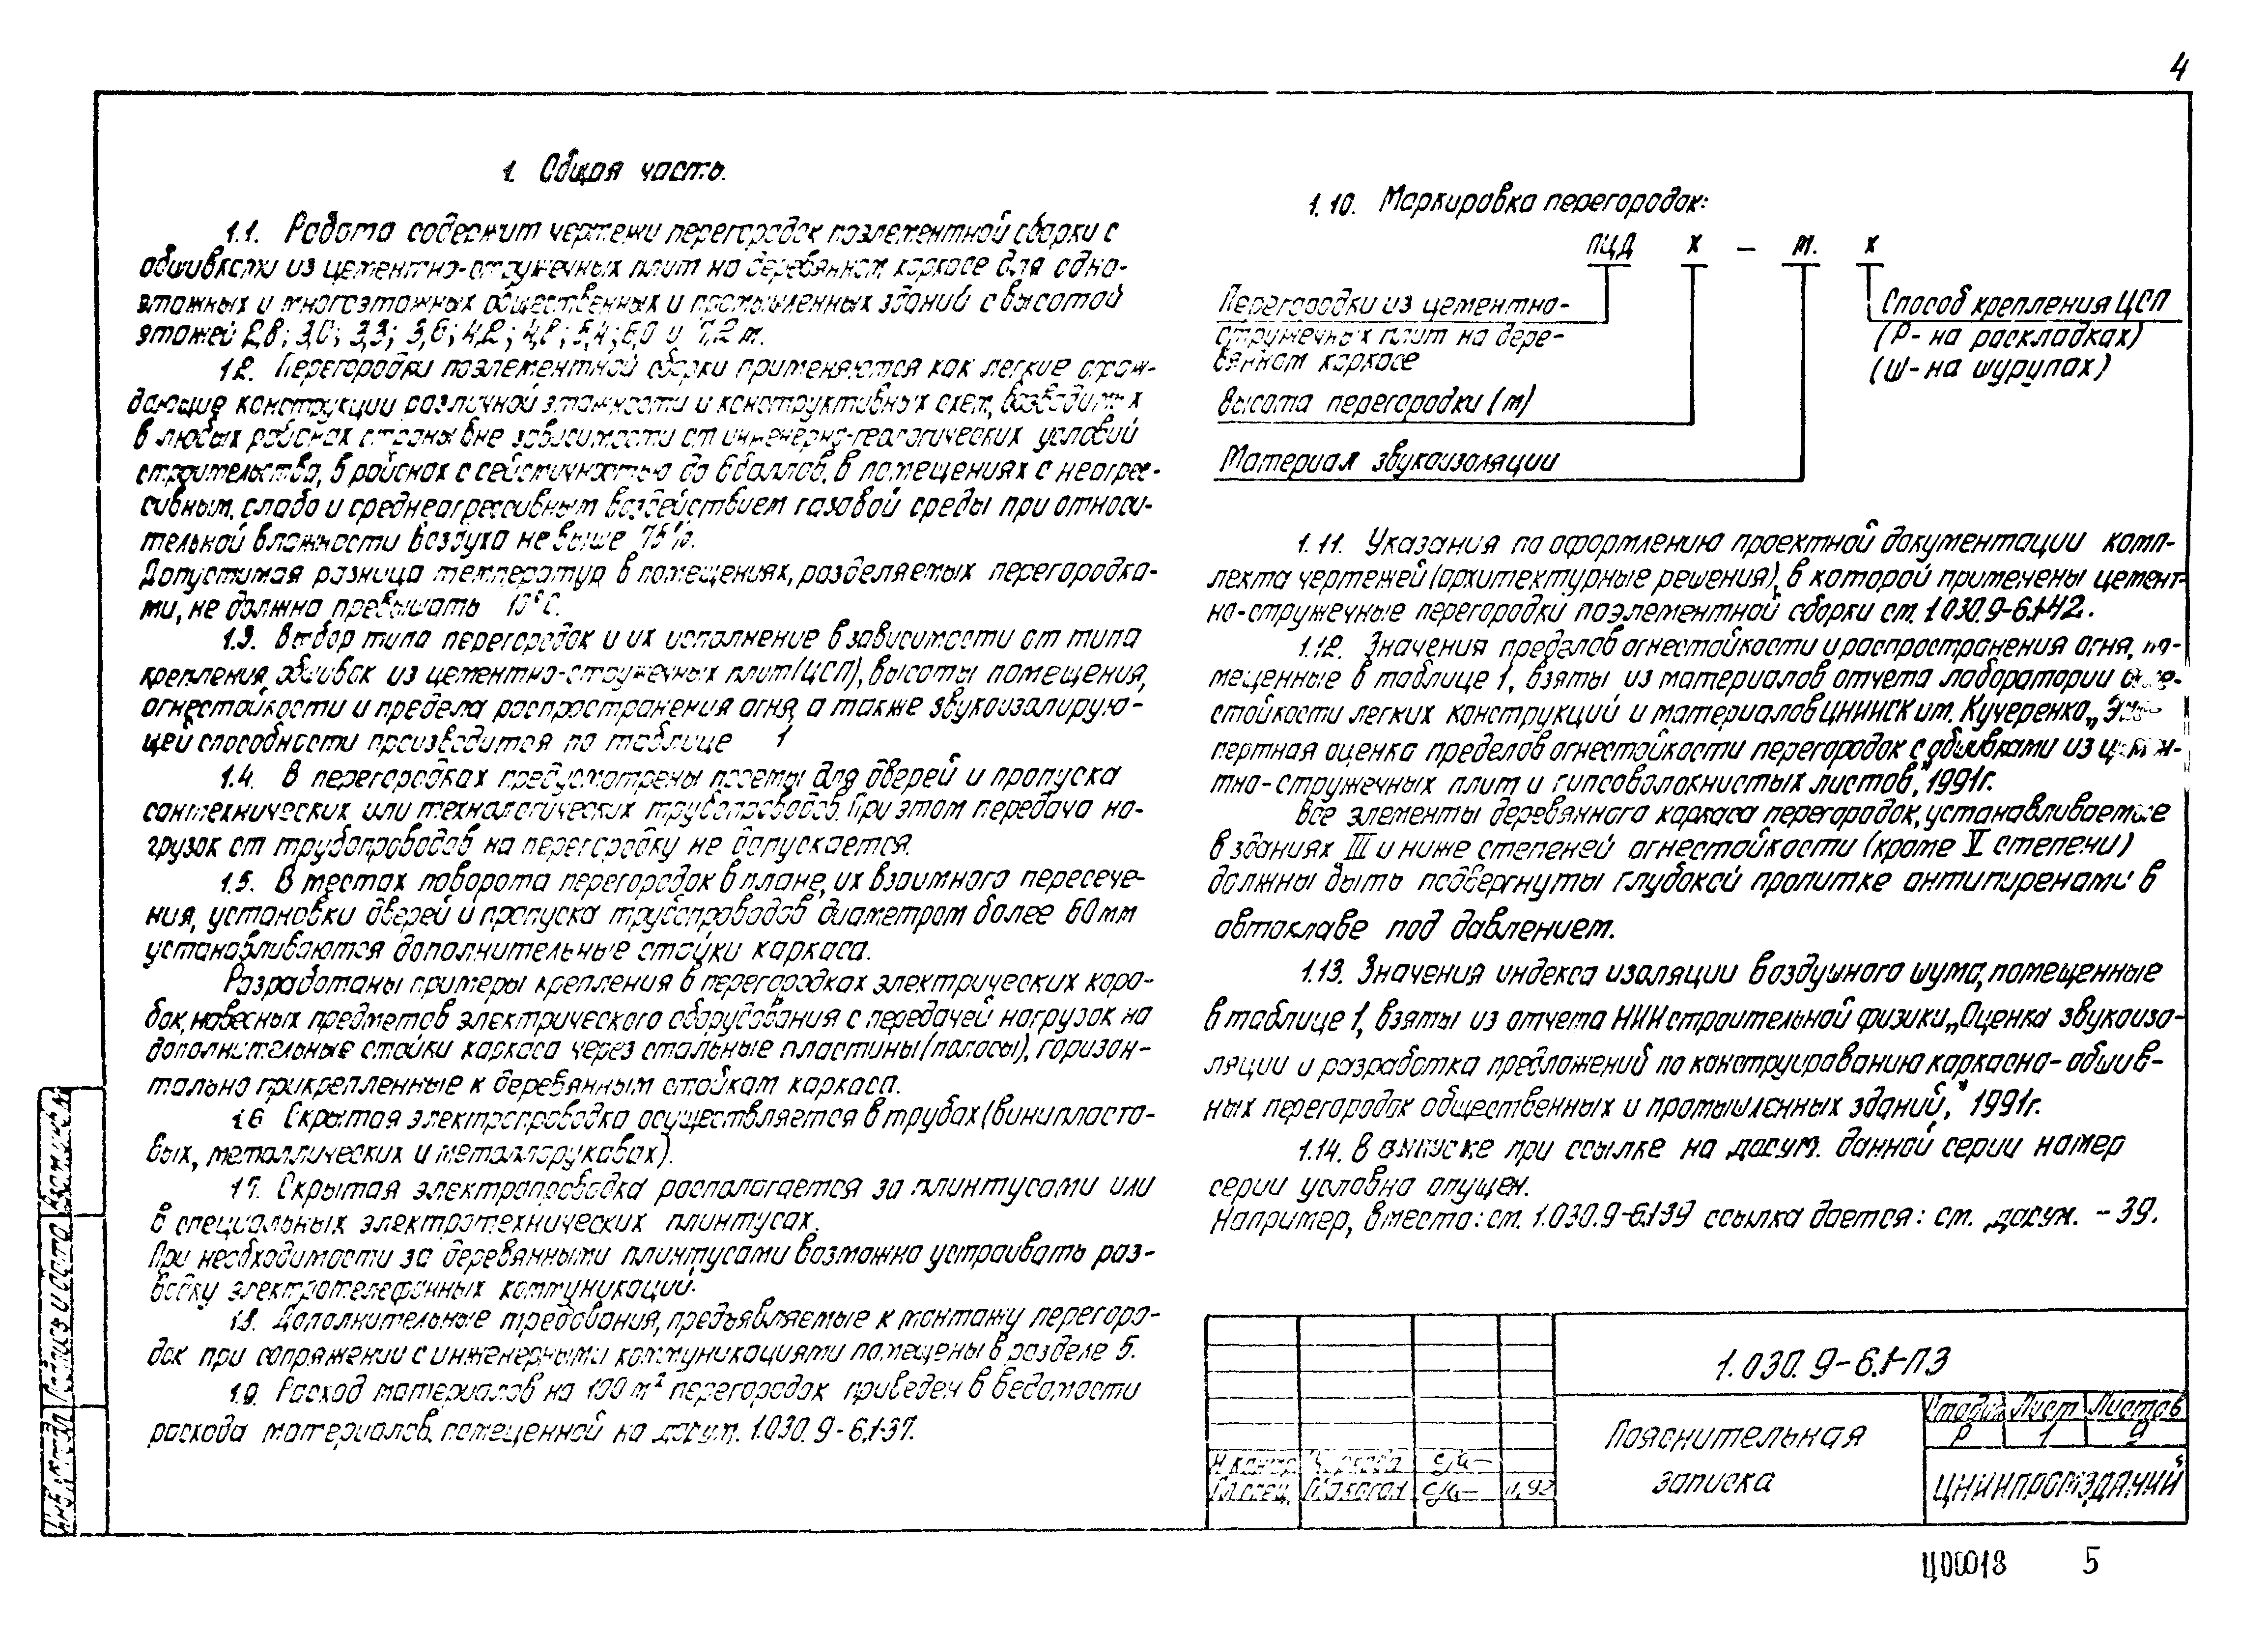 4
1. Общая часть.
1.1. Работа содержит чертежи перегородок поэлементной сборки с
обшивками из цементно-стружечных плит на деревянном каркасе для одно-
этажных и многоэтажных общественных и промышленных зданий с высотой
этажей 2,8; 3,0; 3,3; 3,6; 4,2; 4,8; 5,4; 6,0 и 7,2 м.
1.2. Перегородки поэлементной сборки применяются как легкие ограж-
дающие конструкции различной этажности и конструктивных схем, возводимых
в любых районах страны вне зависимости от инженерно-геологических условий
строительства, в районах с сейсмичностью до 6 баллов, в помещениях с неагрес-
сивным, слабо и среднеагрессивным воздействием газовой среды при относи-
тельной влажности воздуха не выше 75%.
Допустимая разница температур в помещениях, разделяемых перегородка-
ми, не должна превышать 10°С.
1.3. Выбор типа перегородок и их исполнение в зависимости от типа
крепления обшивок из цементно-стружечных плит (ЦСП), высоты помещения,
огнестойкости и предела распространения огня, а также звукоизолирую-
щей способности производится по таблице 1
1.4. В перегородках предусмотрены проемы для дверей и пропуска
сантехнических или технологических трубопроводов. При этом передача на-
грузок от трубопроводов на перегородку не допускается.
1.5. В местах поворота перегородок в плане, их взаимного пересече-
ния, установки дверей и пропуска трубопроводов диаметром более 60 мм
устанавливаются дополнительные стойки каркаса.
Разработаны примеры крепления в перегородках электрических коро-
бок, навесных предметов электрического оборудования с передачей нагрузок на
дополнительные стойки каркаса через стальные пластины (полосы), горизон-
тально прикрепленные к деревянным стойкам каркаса.
1.6 Скрытая электропроводка осуществляется в трубах (винипласто-
вых, металлических и металлорукавах).
1.7. Скрытая электропроводка располагается за плинтусами или
в специальных электротехнических плинтусах.
При необходимости за деревянными плинтусами возможно устраивать раз-
водку электротелефонных коммуникаций.
1.8. Дополнительные требования, предъявляемые к монтажу перегоро-
док при сопряжении с инженерными коммуникациями помещены в разделе 5.
1.9. Расход материалов на 100 м² перегородок приведен в ведомости
расхода материалов, помещенной на докум. 1.030.9-6.1-37.
1.10. Маркировка перегородок:
ПЦД Х - М. Х
Перегородки из цементно-
стружечных плит на дере-
вянном каркасе
Высота перегородки (м)
Материал звукоизоляции
Способ крепления ЦСП
(Р - на раскладках)
(Ш - на шурупах)
1.11. Указания по оформлению проектной документации комп-
лекта чертежей (архитектурные решения), в которой применены цемент-
но-стружечные перегородки поэлементной сборки см. 1.030.9-6.1-42.
1.12. Значения пределов огнестойкости и распространения огня, по-
мещенные в таблице 1, взяты из материалов отчета лаборатории огне-
стойкости легких конструкций и материалов ЦНИИСК им. Кучеренко „Экс-
пертная оценка пределов огнестойкости перегородок с обшивками из цемен-
тно-стружечных плит и гипсоволокнистых листов", 1991г.
Все элементы деревянного каркаса перегородок, устанавливаемые
в зданиях III и ниже степеней огнестойкости (кроме V степени)
должны быть подвергнуты глубокой пропитке антипиренами в
автоклаве под давлением.
1.13. Значения индекса изоляции воздушного шума, помещенные
в таблице 1, взяты из отчета НИИ строительной физики „Оценка звукоизо-
ляции и разработка предложений по конструированию каркасно-обшив-
ных перегородок общественных и промышленных зданий", 1991г.
1.14. В выпуске при ссылке на докум. данной серии номер
серии условно опущен.
Например, вместо: см. 1.030.9-6.1-39 ссылка дается: см. докум. - 39.
1.030.9-6.1-ПЗ
Пояснительная
записка
Стадия Лист Листов
Р 1 9
ЦНИИПРОМЗДАНИЙ
Н.контр.
Гл.спец.
11.92
Инв.№ подл. Подпись и дата Взам.инв.№
Ц00018 5